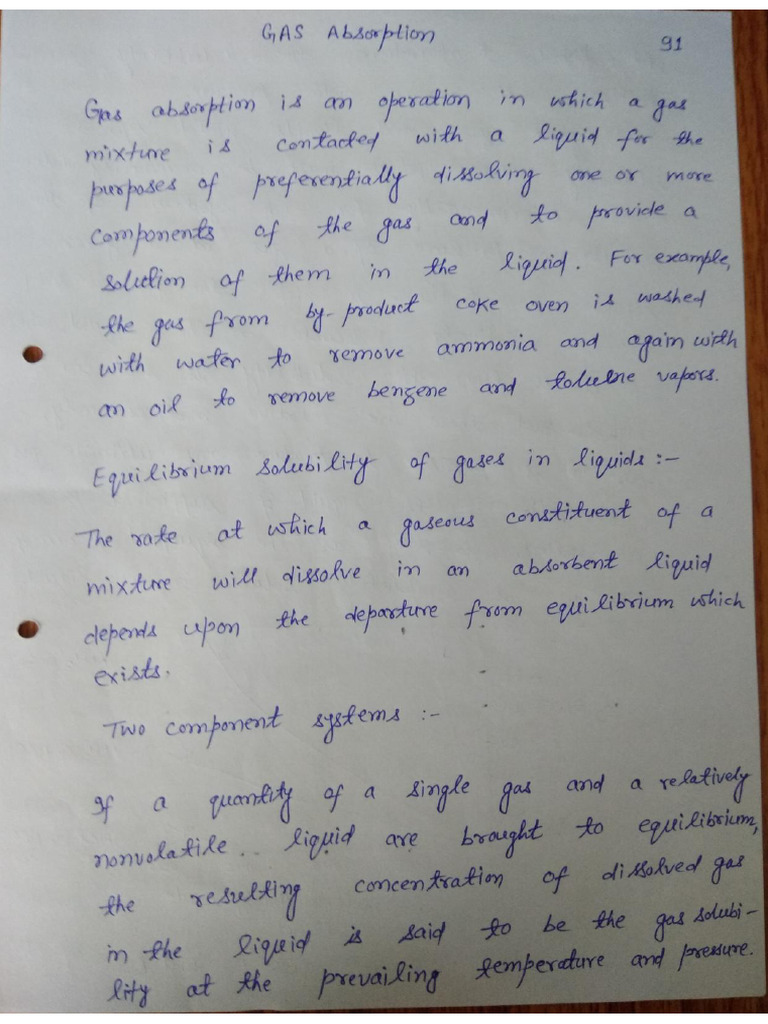 GAS Absorption
91
Gas absorption is an operation in which a gas
mixture is contacted with a liquid for the
purposes of preferentially dissolving one or more
components of the gas and to provide a
solution of them in the liquid. For example,
the gas from by-product coke oven is washed
with water to remove ammonia and again with
an oil to remove benzene and toluene vapors.
Equilibrium solubility of gases in liquids :-
The rate at which a gaseous constituent of a
mixture will dissolve in an absorbent liquid
depends upon the departure from equilibrium which
exists.
Two component systems :-
If a quantity of a single gas and a relatively
nonvolatile liquid are brought to equilibrium,
the resulting concentration of dissolved gas
in the liquid is said to be the gas solubi-
lity at the prevailing temperature and pressure.